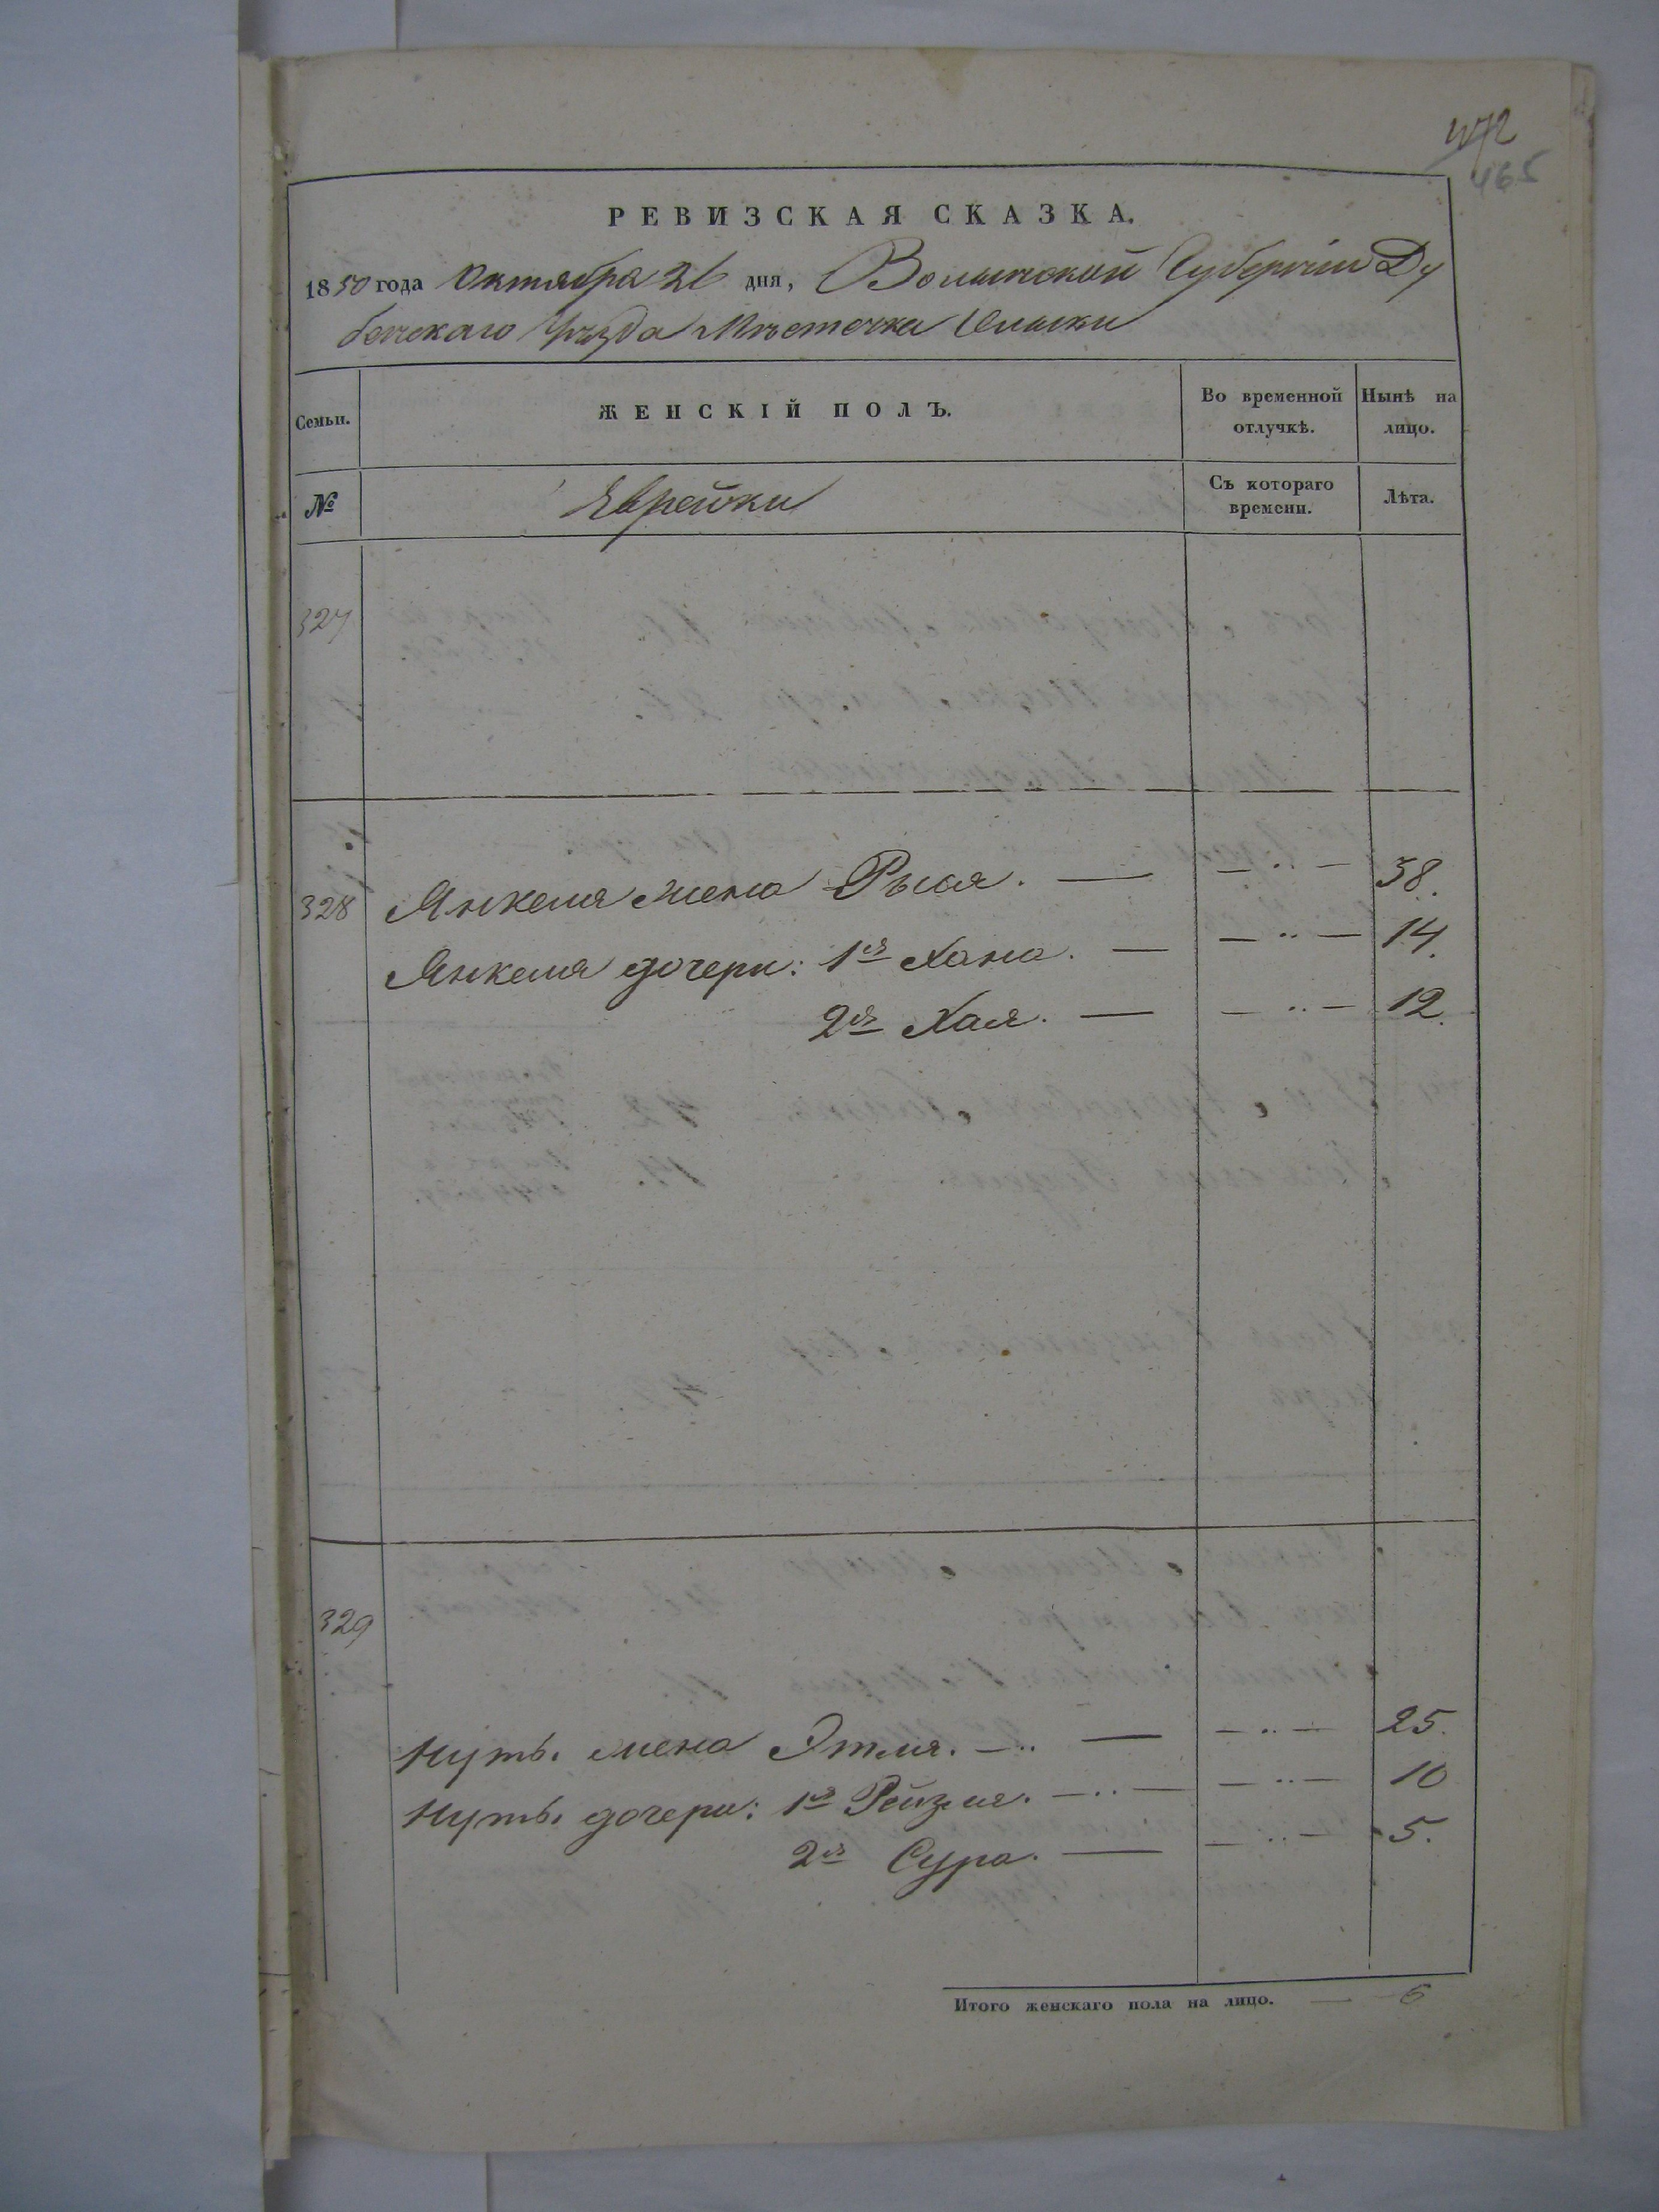 472
465
РЕВИЗСКАЯ СКАЗКА.
1850 года Октября 26 дня, Волынской Губерніи Ду
бенскаго Уѣзда Мѣстечка Олыки
Семьи. ЖЕНСКІЙ ПОЛЪ. Во временной отлучкѣ. Нынѣ на лицо.
№ Еврейки Съ котораго времени. Лѣта.
327
328 Янкеля жена Рыся. — — .. — 38.
Янкеля дочери: 1я Хана. — — .. — 14.
2я Хая. — — .. — 12.
329
Нуты жена Этля. — .. — — .. — 25.
Нуты дочери: 1я Рейзля. — .. — — .. — 10
2я Сура. — — .. — 5.
Итого женскаго пола на лицо. — 6